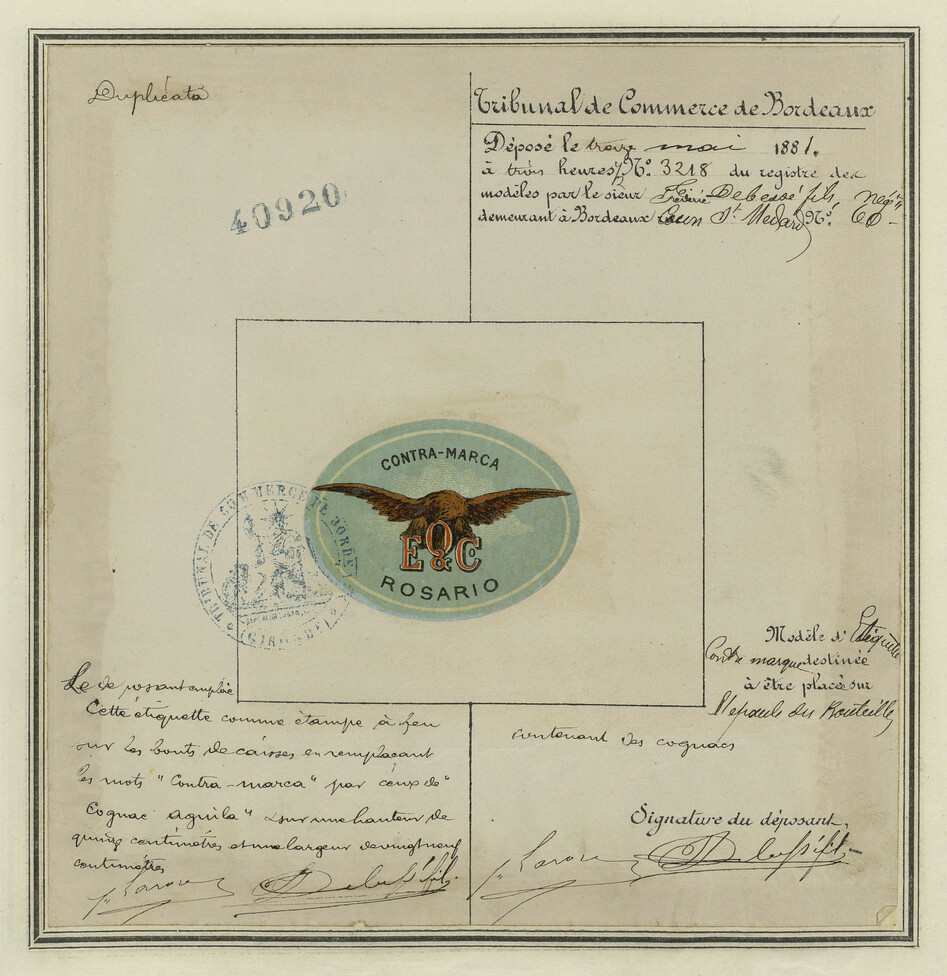 Duplicata
40920
Tribunal de Commerce de Bordeaux
Déposé le treize mai 1881.
à trois heures Nº. 3218 du registre des
modèles par le sieur Frédéric fils, négt
demeurant à Bordeaux Cours St Médard Nº. 60
CONTRA-MARCA
E O & Co
ROSARIO
TRIBUNAL DE COMMERCE DE BORDEAUX
(GIRONDE)
Modèle d'Etiquette
Contre marque destinée
à être placée sur
l'épaule des Bouteilles
contenant des cognacs
Le déposant emploie
Cette étiquette comme étampe à feu
sur les bouts de caisses en remplaçant
les mots "Contra-marca" par ceux de "
Cognac aguila" sur une hauteur de
quinze centimètres et une largeur de vingt neuf
centimètres
Signature du déposant,